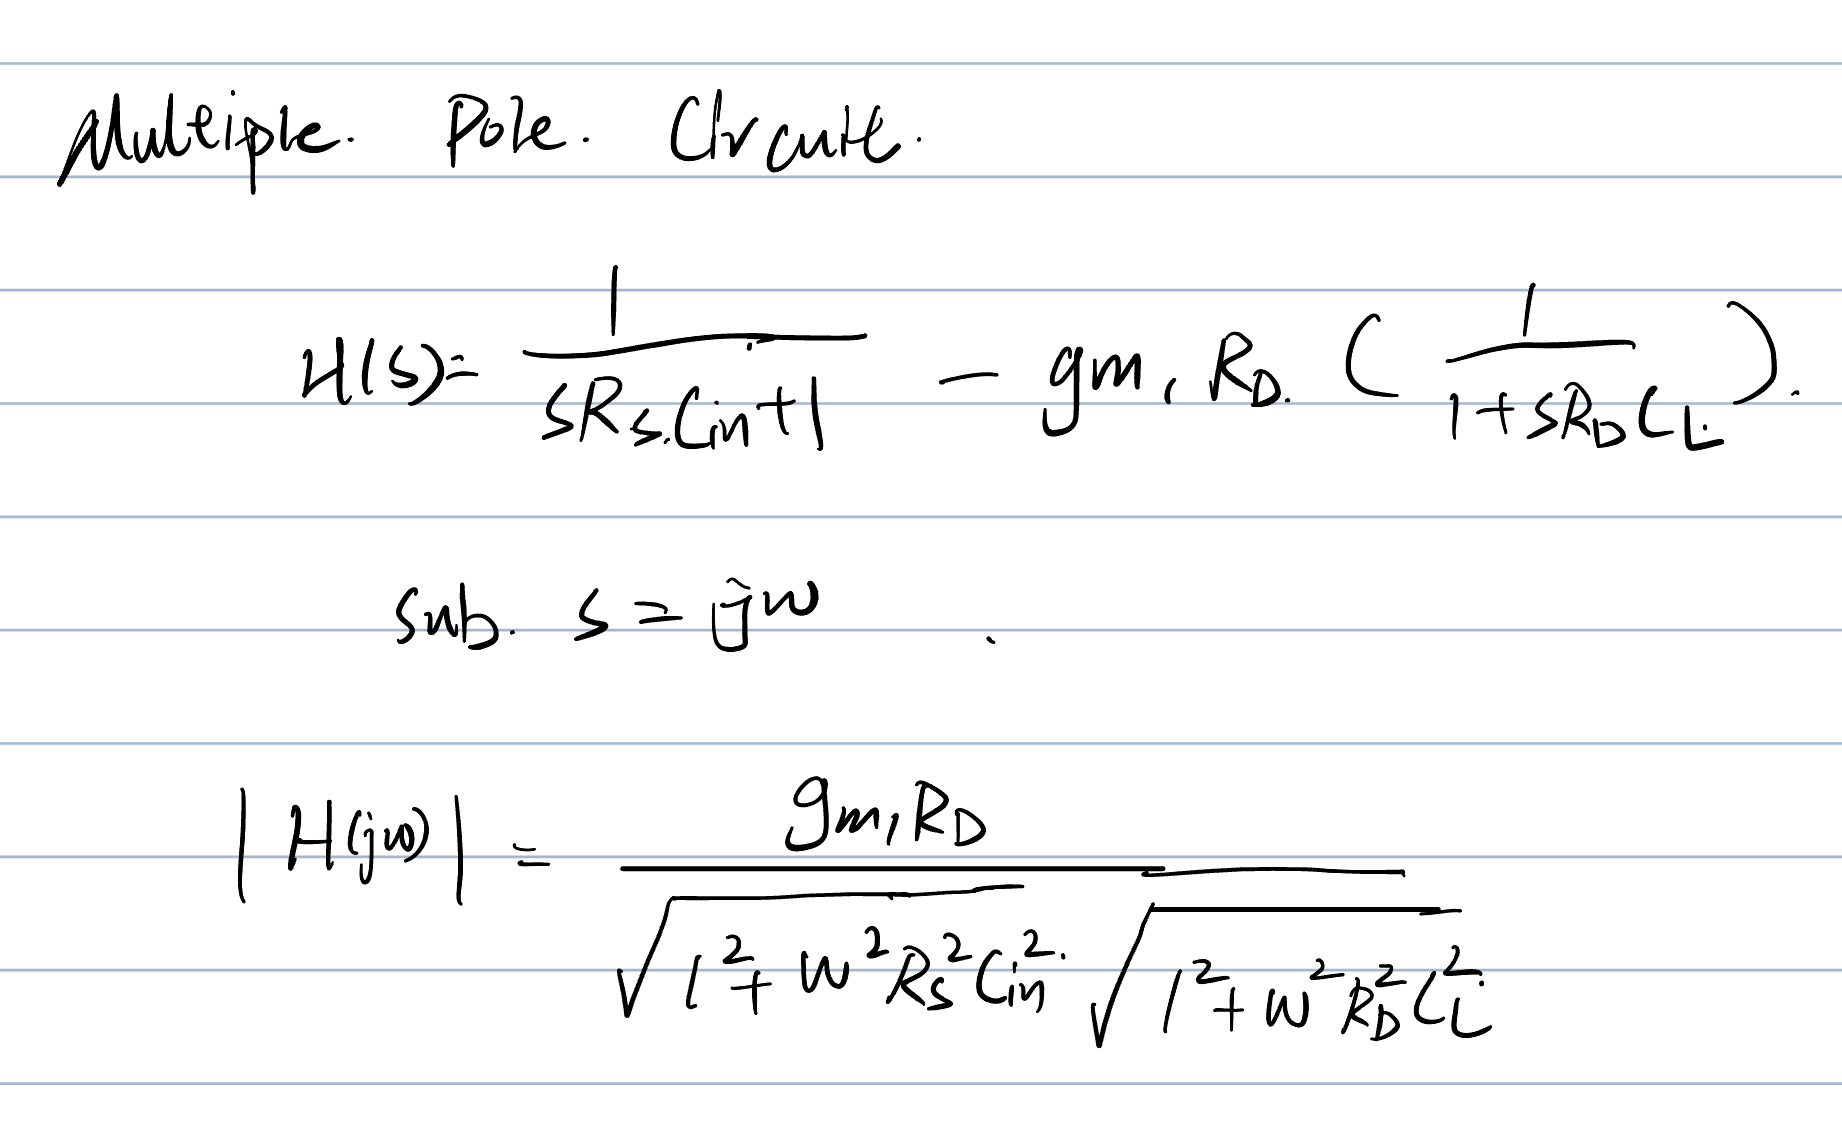 Multiple. Pole. Circuit.
H(s)= \frac{1}{sR_{s}.C_{in}+1} - g_{m1} R_{D}. ( \frac{1}{1+sR_{D}C_{L}} ).
sub. s = jw .
|H(jw)| = \frac{g_{m1}R_{D}}{\sqrt{1^2+w^2R_{s}^2C_{in}^2}. \sqrt{1^2+w^2R_{D}^2C_{L}^2}}